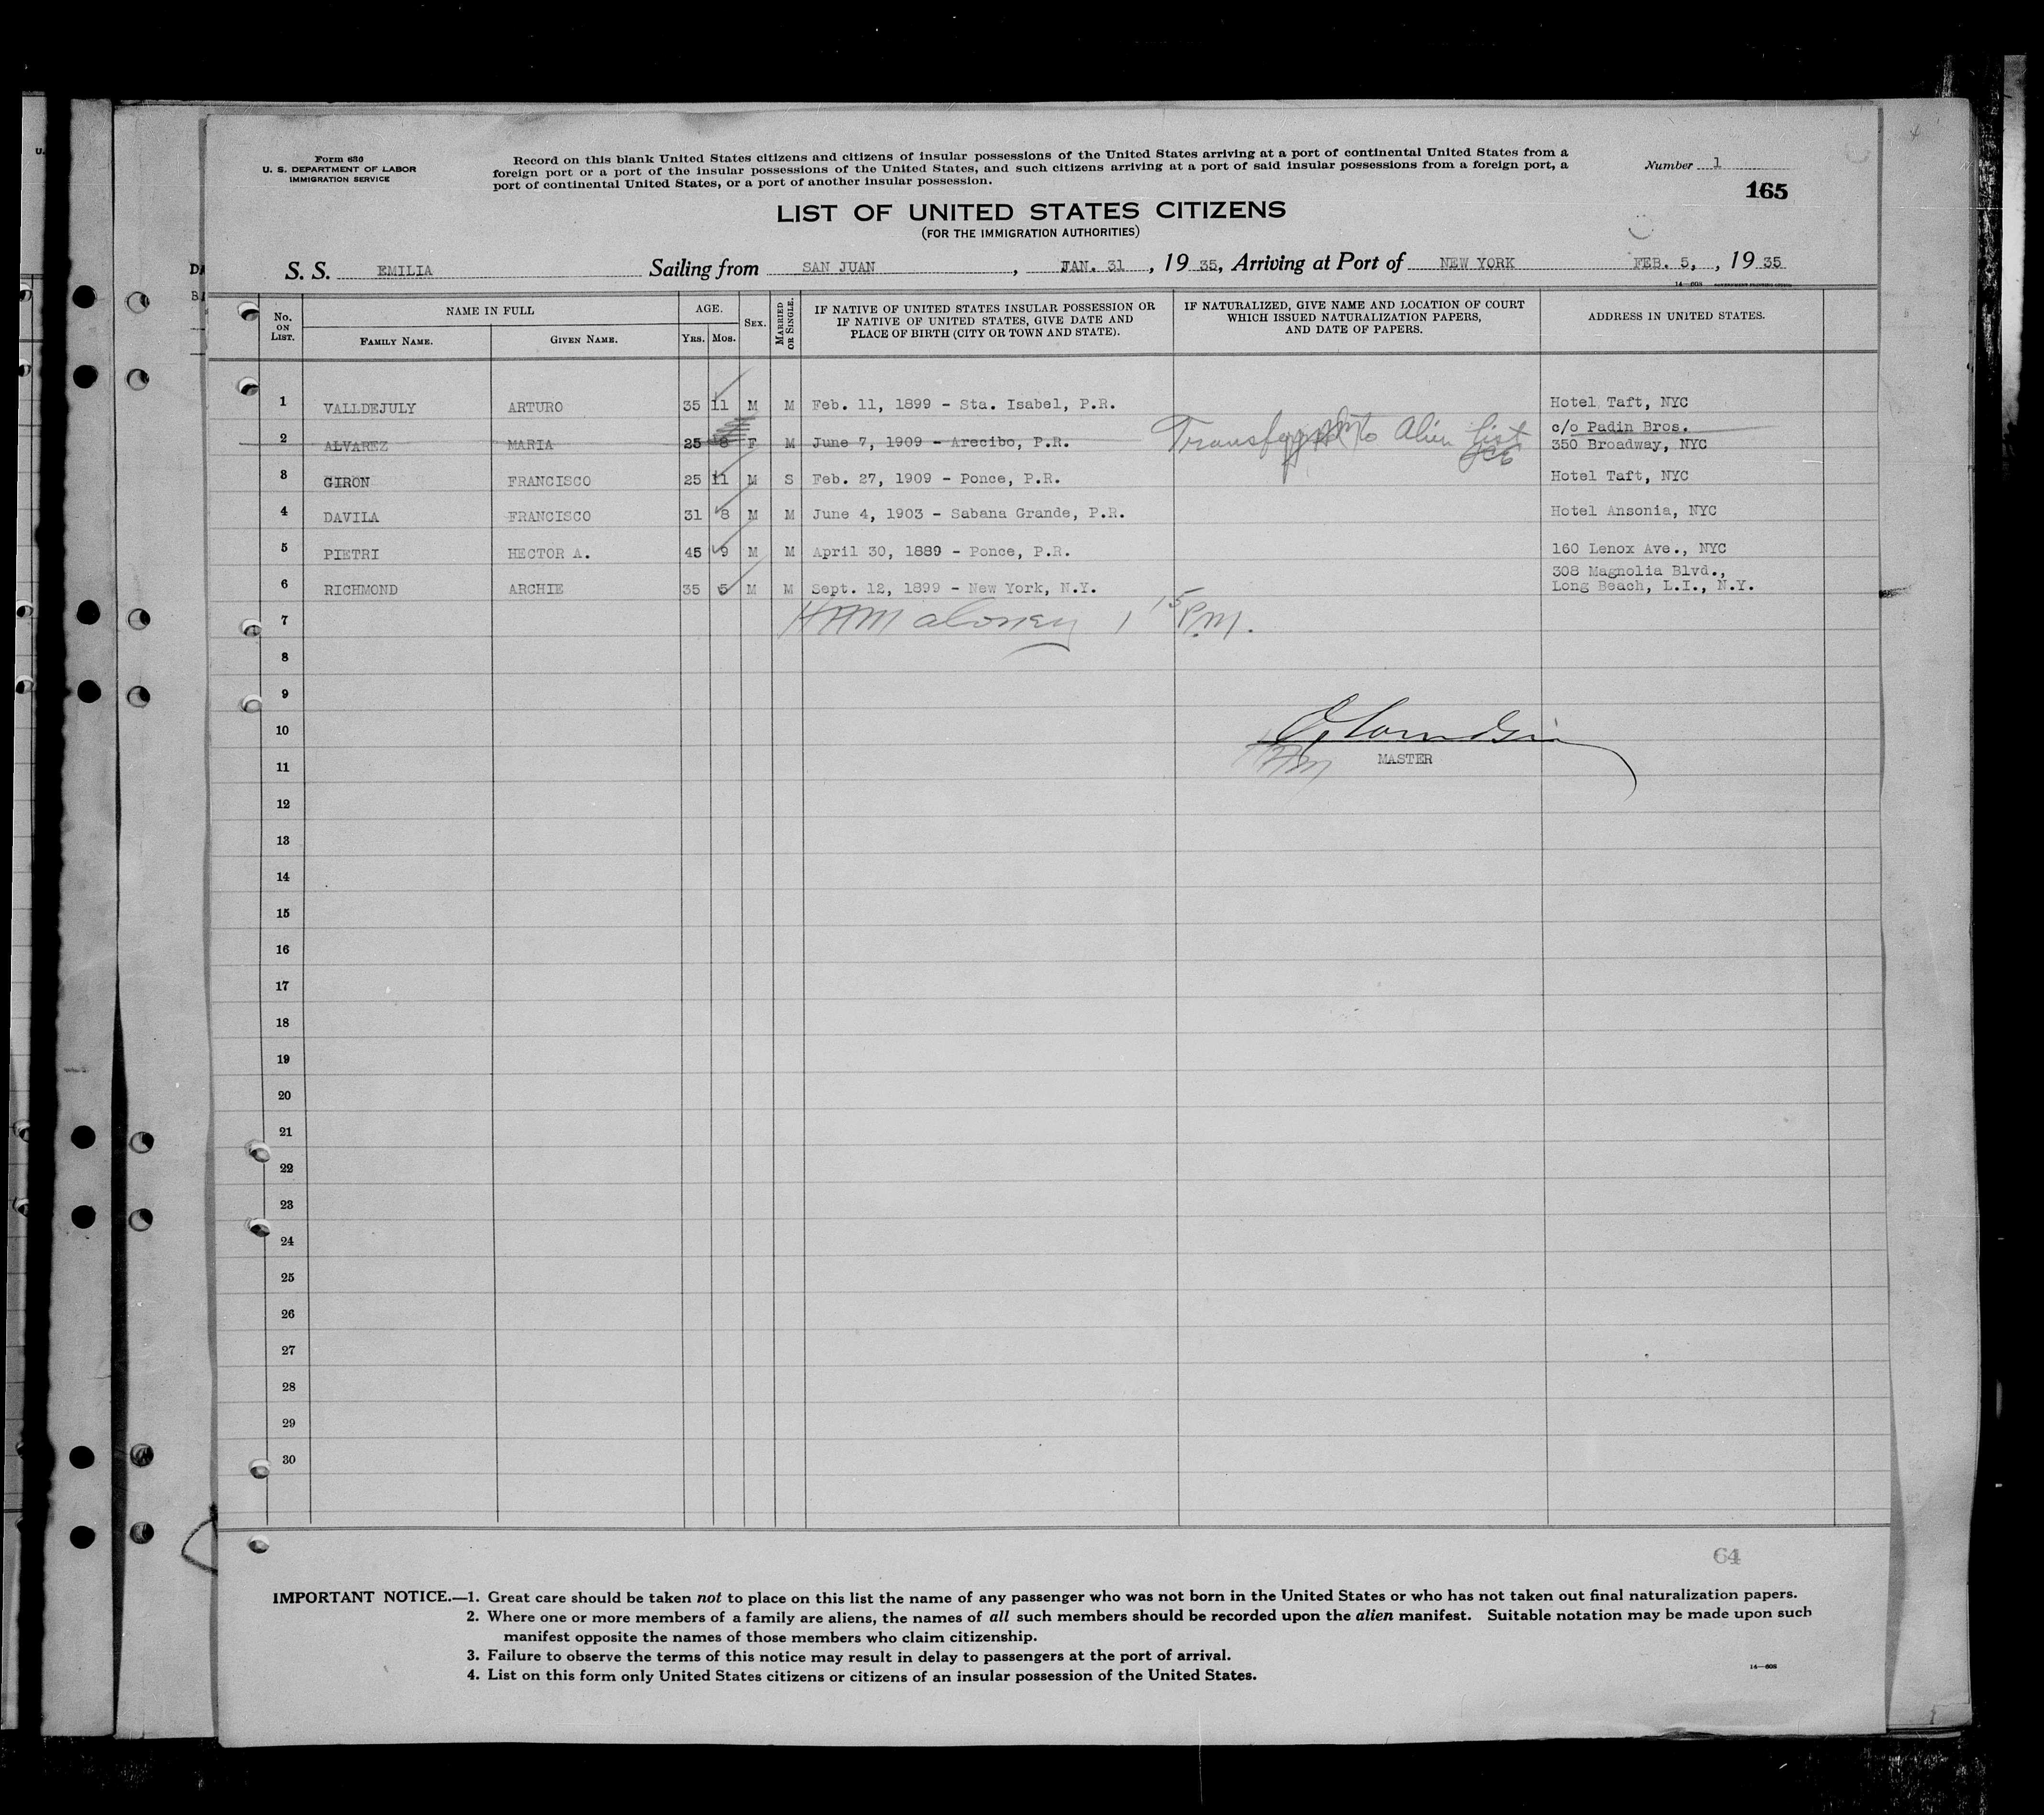 Form 630
U. S. DEPARTMENT OF LABOR
IMMIGRATION SERVICE
Record on this blank United States citizens and citizens of insular possessions of the United States arriving at a port of continental United States from a
foreign port or a port of the insular possessions of the United States, and such citizens arriving at a port of said insular possessions from a foreign port, a
port of continental United States, or a port of another insular possession.
Number 1
165
LIST OF UNITED STATES CITIZENS
(FOR THE IMMIGRATION AUTHORITIES)
S. S. EMILIA Sailing from SAN JUAN, JAN. 31, 19 35, Arriving at Port of NEW YORK FEB. 5, , 19 35
No. ON LIST. NAME IN FULL FAMILY NAME. GIVEN NAME. AGE. YRS. MOS. SEX. MARRIED OR SINGLE. IF NATIVE OF UNITED STATES INSULAR POSSESSION OR IF NATIVE OF UNITED STATES, GIVE DATE AND PLACE OF BIRTH (CITY OR TOWN AND STATE). IF NATURALIZED, GIVE NAME AND LOCATION OF COURT WHICH ISSUED NATURALIZATION PAPERS, AND DATE OF PAPERS. ADDRESS IN UNITED STATES.
1 VALLDEJULY ARTURO 35 11 M M Feb. 11, 1899 - Sta. Isabel, P.R. Hotel Taft, NYC
2 ALVAREZ MARIA 25 8 F M June 7, 1909 - Arecibo, P.R. Transferred to Alien list c/o Padin Bros.
350 Broadway, NYC
3 GIRON FRANCISCO 25 11 M S Feb. 27, 1909 - Ponce, P.R. Hotel Taft, NYC
4 DAVILA FRANCISCO 31 8 M M June 4, 1903 - Sabana Grande, P.R. Hotel Ansonia, NYC
5 PIETRI HECTOR A. 45 9 M M April 30, 1889 - Ponce, P.R. 160 Lenox Ave., NYC
6 RICHMOND ARCHIE 35 5 M M Sept. 12, 1899 - New York, N.Y. 308 Magnolia Blvd.,
Long Beach, L.I., N.Y.
7 HAMaloney 1 15 P.M.
8
9
10
11 MASTER
12
13
14
15
16
17
18
19
20
21
22
23
24
25
26
27
28
29
30
64
IMPORTANT NOTICE.—1. Great care should be taken not to place on this list the name of any passenger who was not born in the United States or who has not taken out final naturalization papers.
2. Where one or more members of a family are aliens, the names of all such members should be recorded upon the alien manifest. Suitable notation may be made upon such
manifest opposite the names of those members who claim citizenship.
3. Failure to observe the terms of this notice may result in delay to passengers at the port of arrival.
4. List on this form only United States citizens or citizens of an insular possession of the United States.
14—608